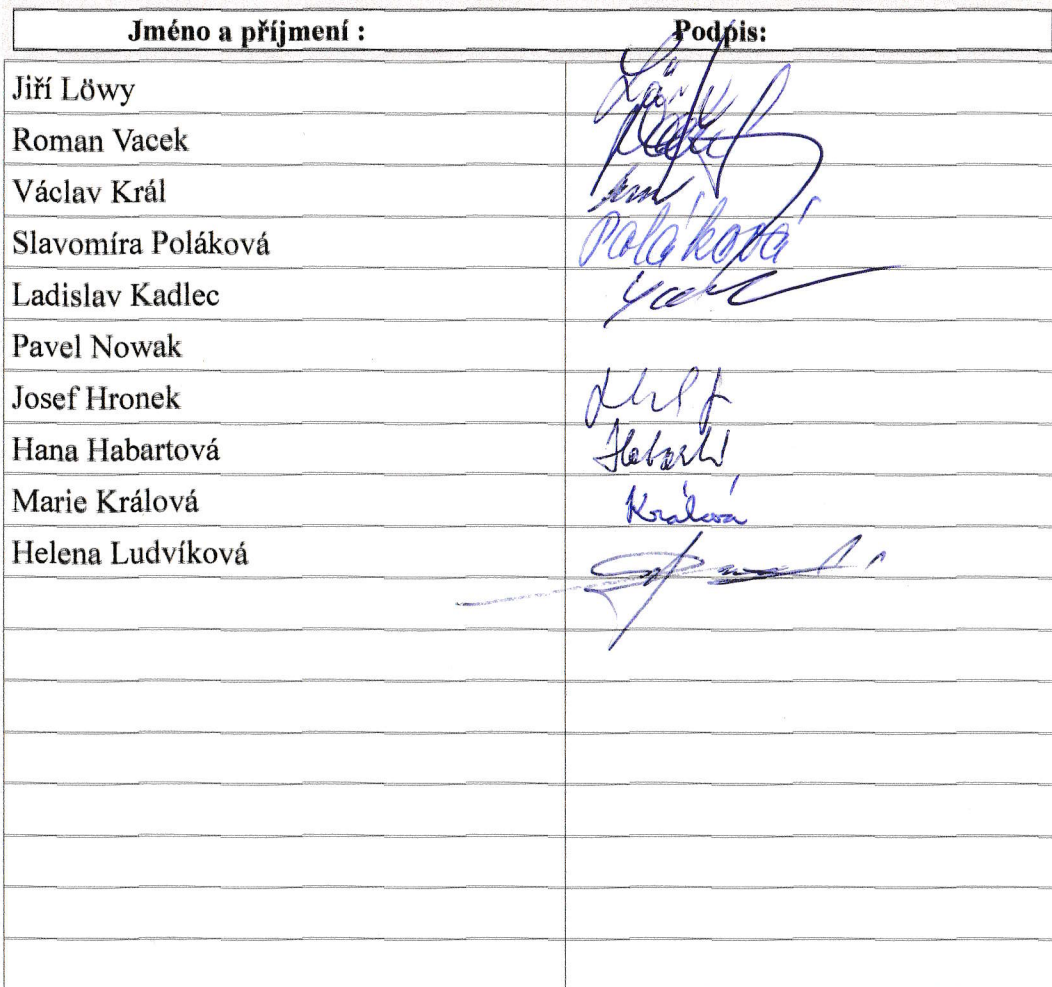 Jméno a příjmení : Podpis:
Jiří Löwy
Roman Vacek
Václav Král
Slavomíra Poláková Poláková
Ladislav Kadlec
Pavel Nowak
Josef Hronek
Hana Habartová
Marie Králová Králová
Helena Ludvíková